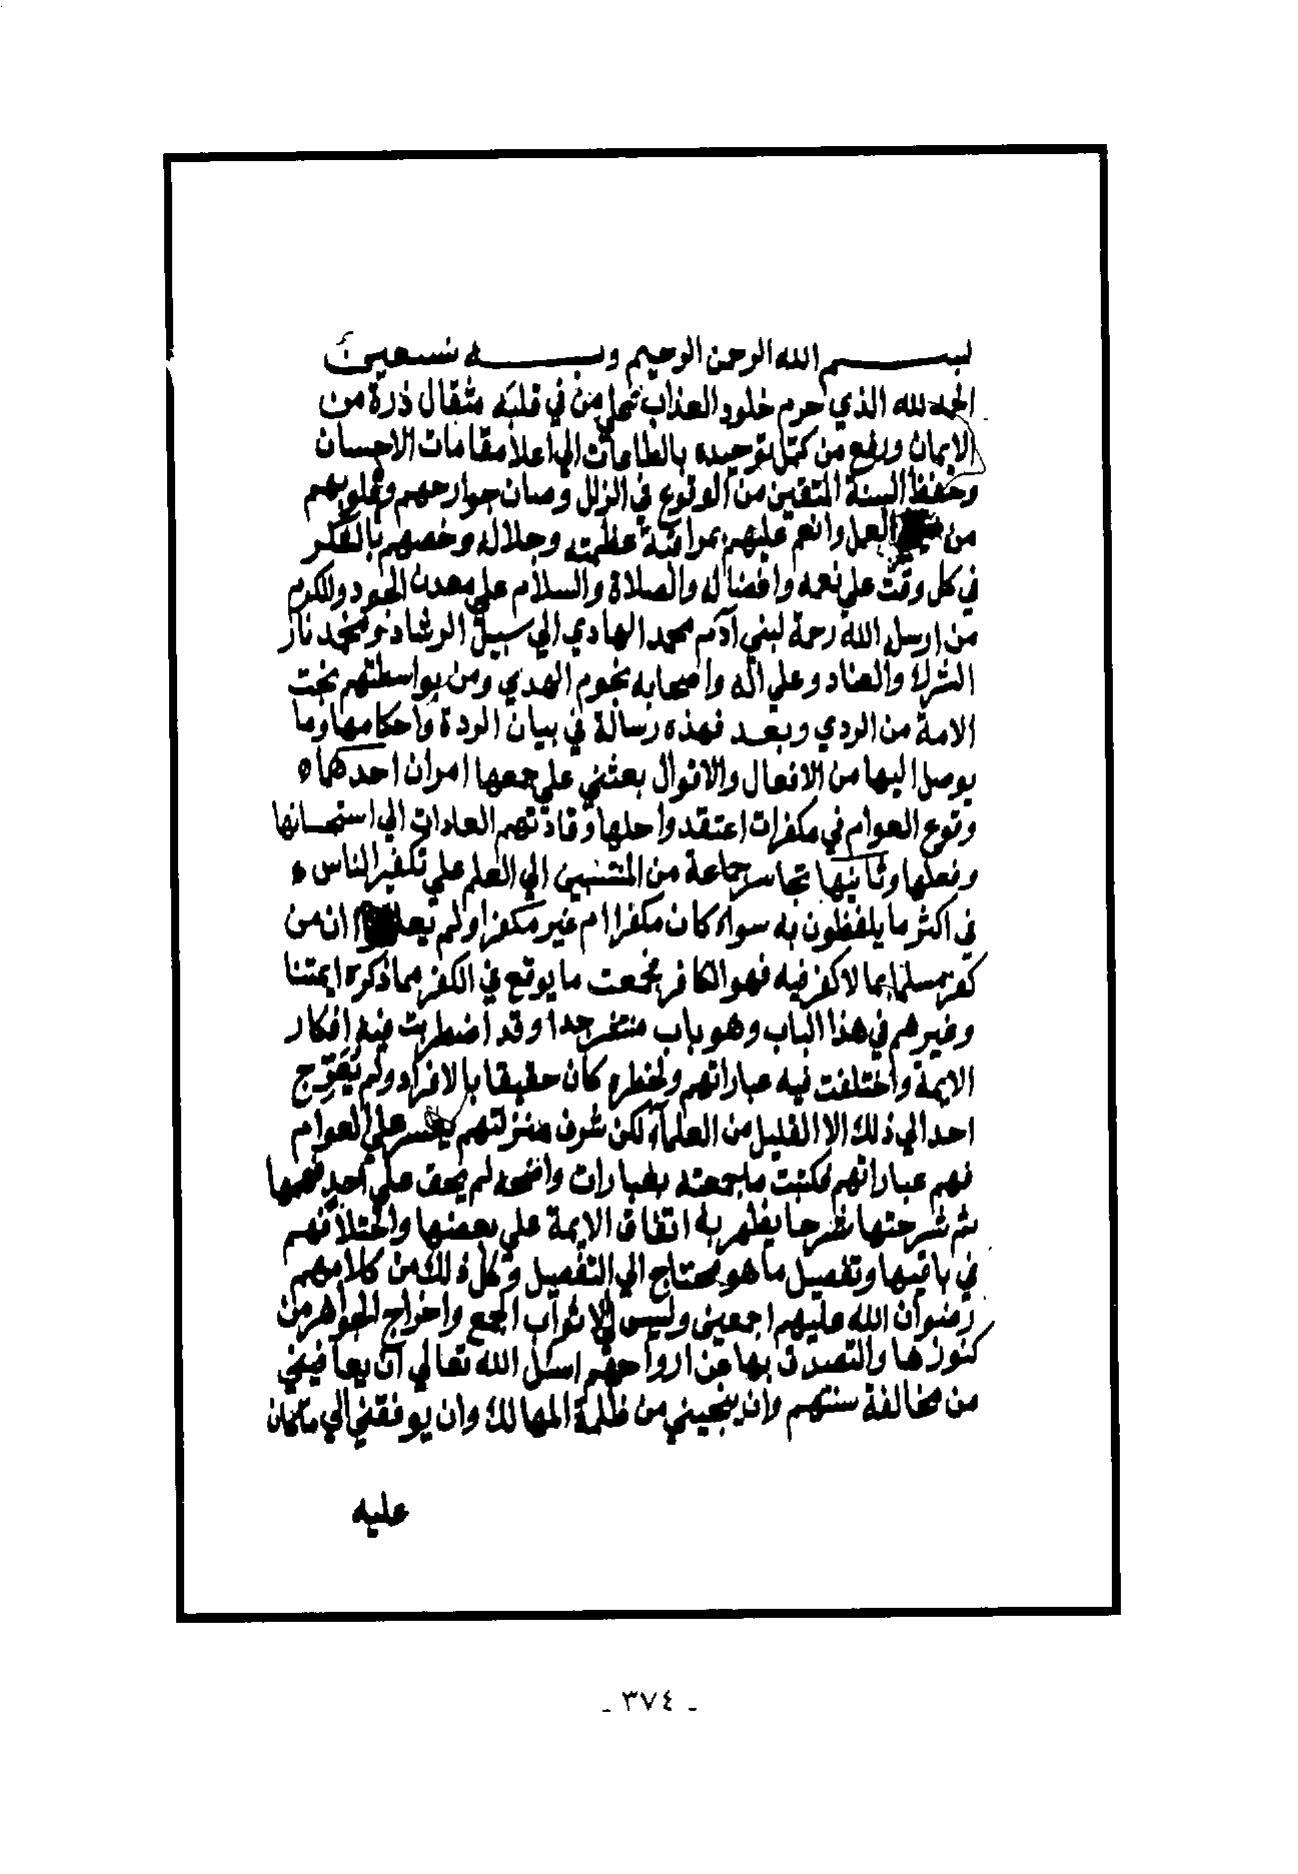 بسم الله الرحمن الرحيم وبه نستعين
الحمد لله الذي حرم خلود العذاب على من في قلبه مثقال ذرة من
الايمان ورفع من كمل توحيده بالطاعات الي اعلا مقامات الاحسان
وحفظ السنة المتقين من الوقوع في الزلل وصان جوارحهم وقلوبهم
من العلل وانعم عليهم بمراقبة عظمته وجلاله وخصهم بالفكر
في كل وقت علي نعمه وافضاله والصلاة والسلام علي معدن الجود والكرم
من ارسل الله رحمة لبني آدم محمد الهادي الي سبيل الرشاد ومخمد نار
الشرك والعناد وعلي اله واصحابه نجوم الهدي ومن بواسطتهم نجت
الامة من الردي وبعد فهذه رسالة في بيان الردة واحكامها وما
يوصل اليها من الافعال والاقوال بعثني علي جمعها امران احدهما
وقوع العوام في مكفرات اعتقدوا حلها وقادتهم العادات الي استحسانها
وفعلها وثانيها تجاسر جماعة من المنتسبين الي العلم علي تكفير الناس
في اكثر ما يلفظون به سواء كان مكفرا ام غير مكفرا ولم يعلموا ان من
كفر مسلما بما لا كفر فيه فهو الكافر فجمعت ما يوقع في الكفر مما ذكره ايمتنا
وغيرهم في هذا الباب وهو باب منتشر جدا وقد اضطربت فيه افكار
الايمة واختلفت فيه عباراتهم ولخطره كان حقيقا بالافراد ولم يعرج
احد الي ذلك الا القليل من العلمآء لكن شرف منزلتهم يعسر علي العوام
فهم عباراتهم فكتبت ما جمعته بعبارات واضحه لم يخف علي احد فهمها
ثم شرحتها شرحا يظهر به اتفاق الايمة علي بعضها واختلافهم
في باقيها وتفصيل ما هو محتاج الي التفصيل وكل ذلك من كلامهم
رضوان الله عليهم اجمعين وليس الا ثواب الجمع واخراج الجواهر من
كنوزها والتصدق بها عن ارواحهم اسئل الله تعالي ان يعافيني
من مخالفة سنتهم وان ينجيني من ظلمة المهالك وان يوفقني الي ما كان
عليه
- ٣٧٤ -